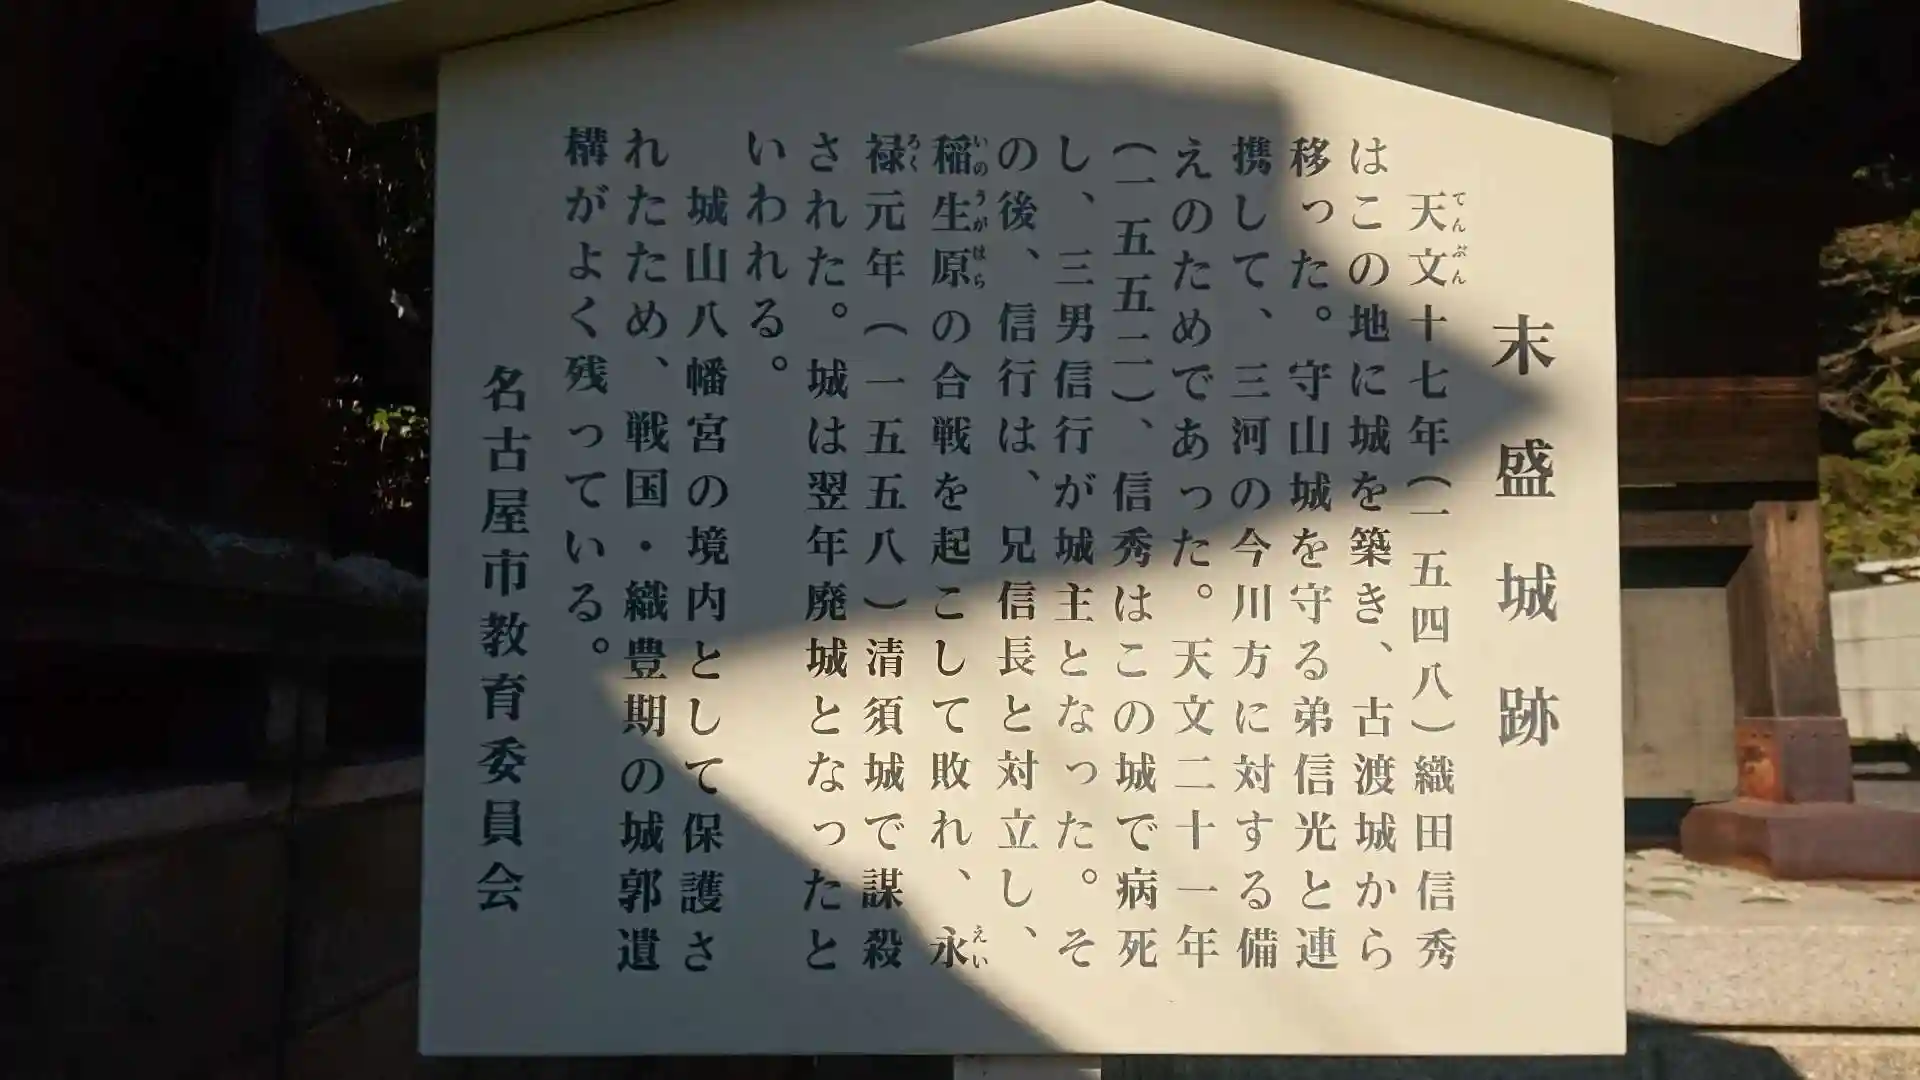 末盛城跡
天文十七年（一五四八）織田信秀
てんぶん
はこの地に城を築き、古渡城から
移った。守山城を守る弟信光と連
携して、三河の今川方に対する備
えのためであった。天文二十一年
（一五五二）、信秀はこの城で病死
し、三男信行が城主となった。そ
の後、信行は、兄信長と対立し、
稲生原の合戦を起こして敗れ、永
いのうがはら えい
禄元年（一五五八）清須城で謀殺
ろく
された。城は翌年廃城となったと
いわれる。
城山八幡宮の境内として保護さ
れたため、戦国・織豊期の城郭遺
構がよく残っている。
名古屋市教育委員会